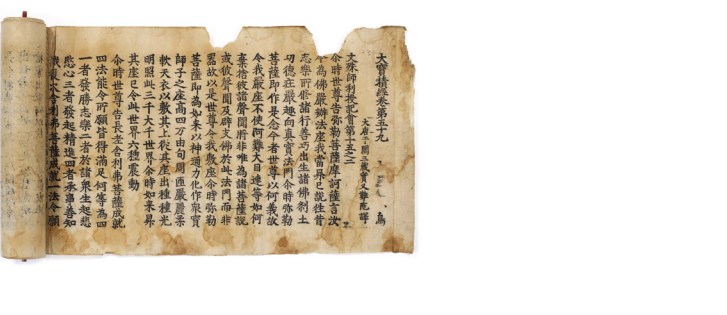 大寶積經卷第五十九
大唐于闐三藏實叉難陀譯
文殊師利授記會第十五之二
尒時世尊告弥勒菩薩摩訶薩言汝
為佛嚴辦法座我當昇已說往昔
志樂所修諸行善巧出生諸佛剎土
功德庄嚴趣向真實法門尒時弥勒
菩薩即作是念今者世尊以何義故
令我嚴座不使阿難大目連等如何
棄捨彼諸聲聞將非唯為諸菩薩說
或彼聲聞及辟支佛於此法門而非
器故以是世尊令我敷座尒時弥勒
菩薩即為如来以神通力化作衆寶
師子之座高四万由旬周匝嚴麗柔
軟天衣以敷其上從其座出種種光
明照此三千大千世界尒時如来昇
其座已令此世界六種震動
尒時世尊告長老舍利弗菩薩成就
四法能令所願皆得滿足何等為四
一者發勝志樂二者於諸衆生起悲
愍心三者發起精進四者承事善知
識復次舍利弗菩薩成就一法令願